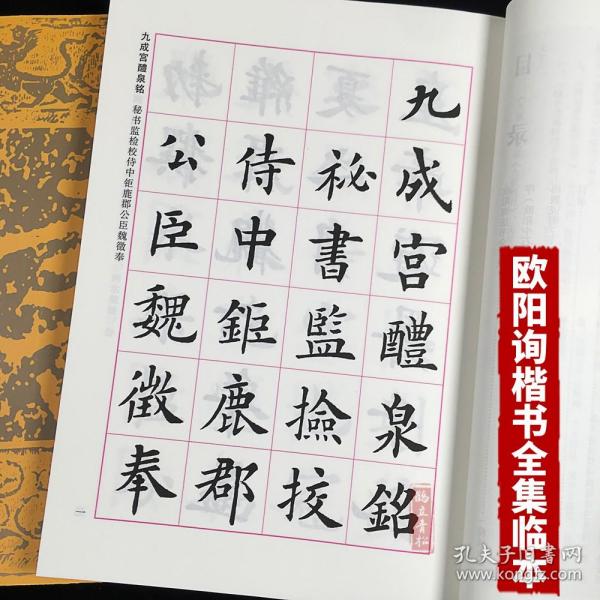 目录
九成宮醴泉銘
祕書監撿挍
侍中鉅鹿郡
公臣魏徵奉
九成宫醴泉铭 秘书监检校侍中钜鹿郡公臣魏徵奉
一
欧阳询楷书全集临本
孔夫子旧书网
www.kongfz.com